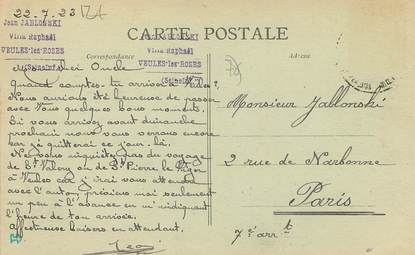 22-7-23
CARTE POSTALE
Jean JABLONSKI
Villa Raphaël
VEULES-les-ROSES
(Seine Infre)
Jean JABLONSKI
Villa Raphaël
VEULES-les-ROSES
(Seine Infre)
Correspondance
Adresse
Mon cher Oncle
Quand comptes-tu arriver à Veules?
Nous aurions été heureuse de passer
avec vous quelques bons moments.
Si vous arrivez avant dimanche
prochain nous vous verrons encore
car je quitterai ce jour-là.
Ne vous inquiétez pas du voyage
de St Valery ou de St Pierre le Viger
à Veules car j'irai vous attendre
avec l'auto, préviens moi seulement
un peu à l'avance en m'indiquant
l'heure de ton arrivée.
Affectueux baisers en attendant.
Jean
Monsieur Jablonski
2 rue de Narbonne
Paris
7e arrt